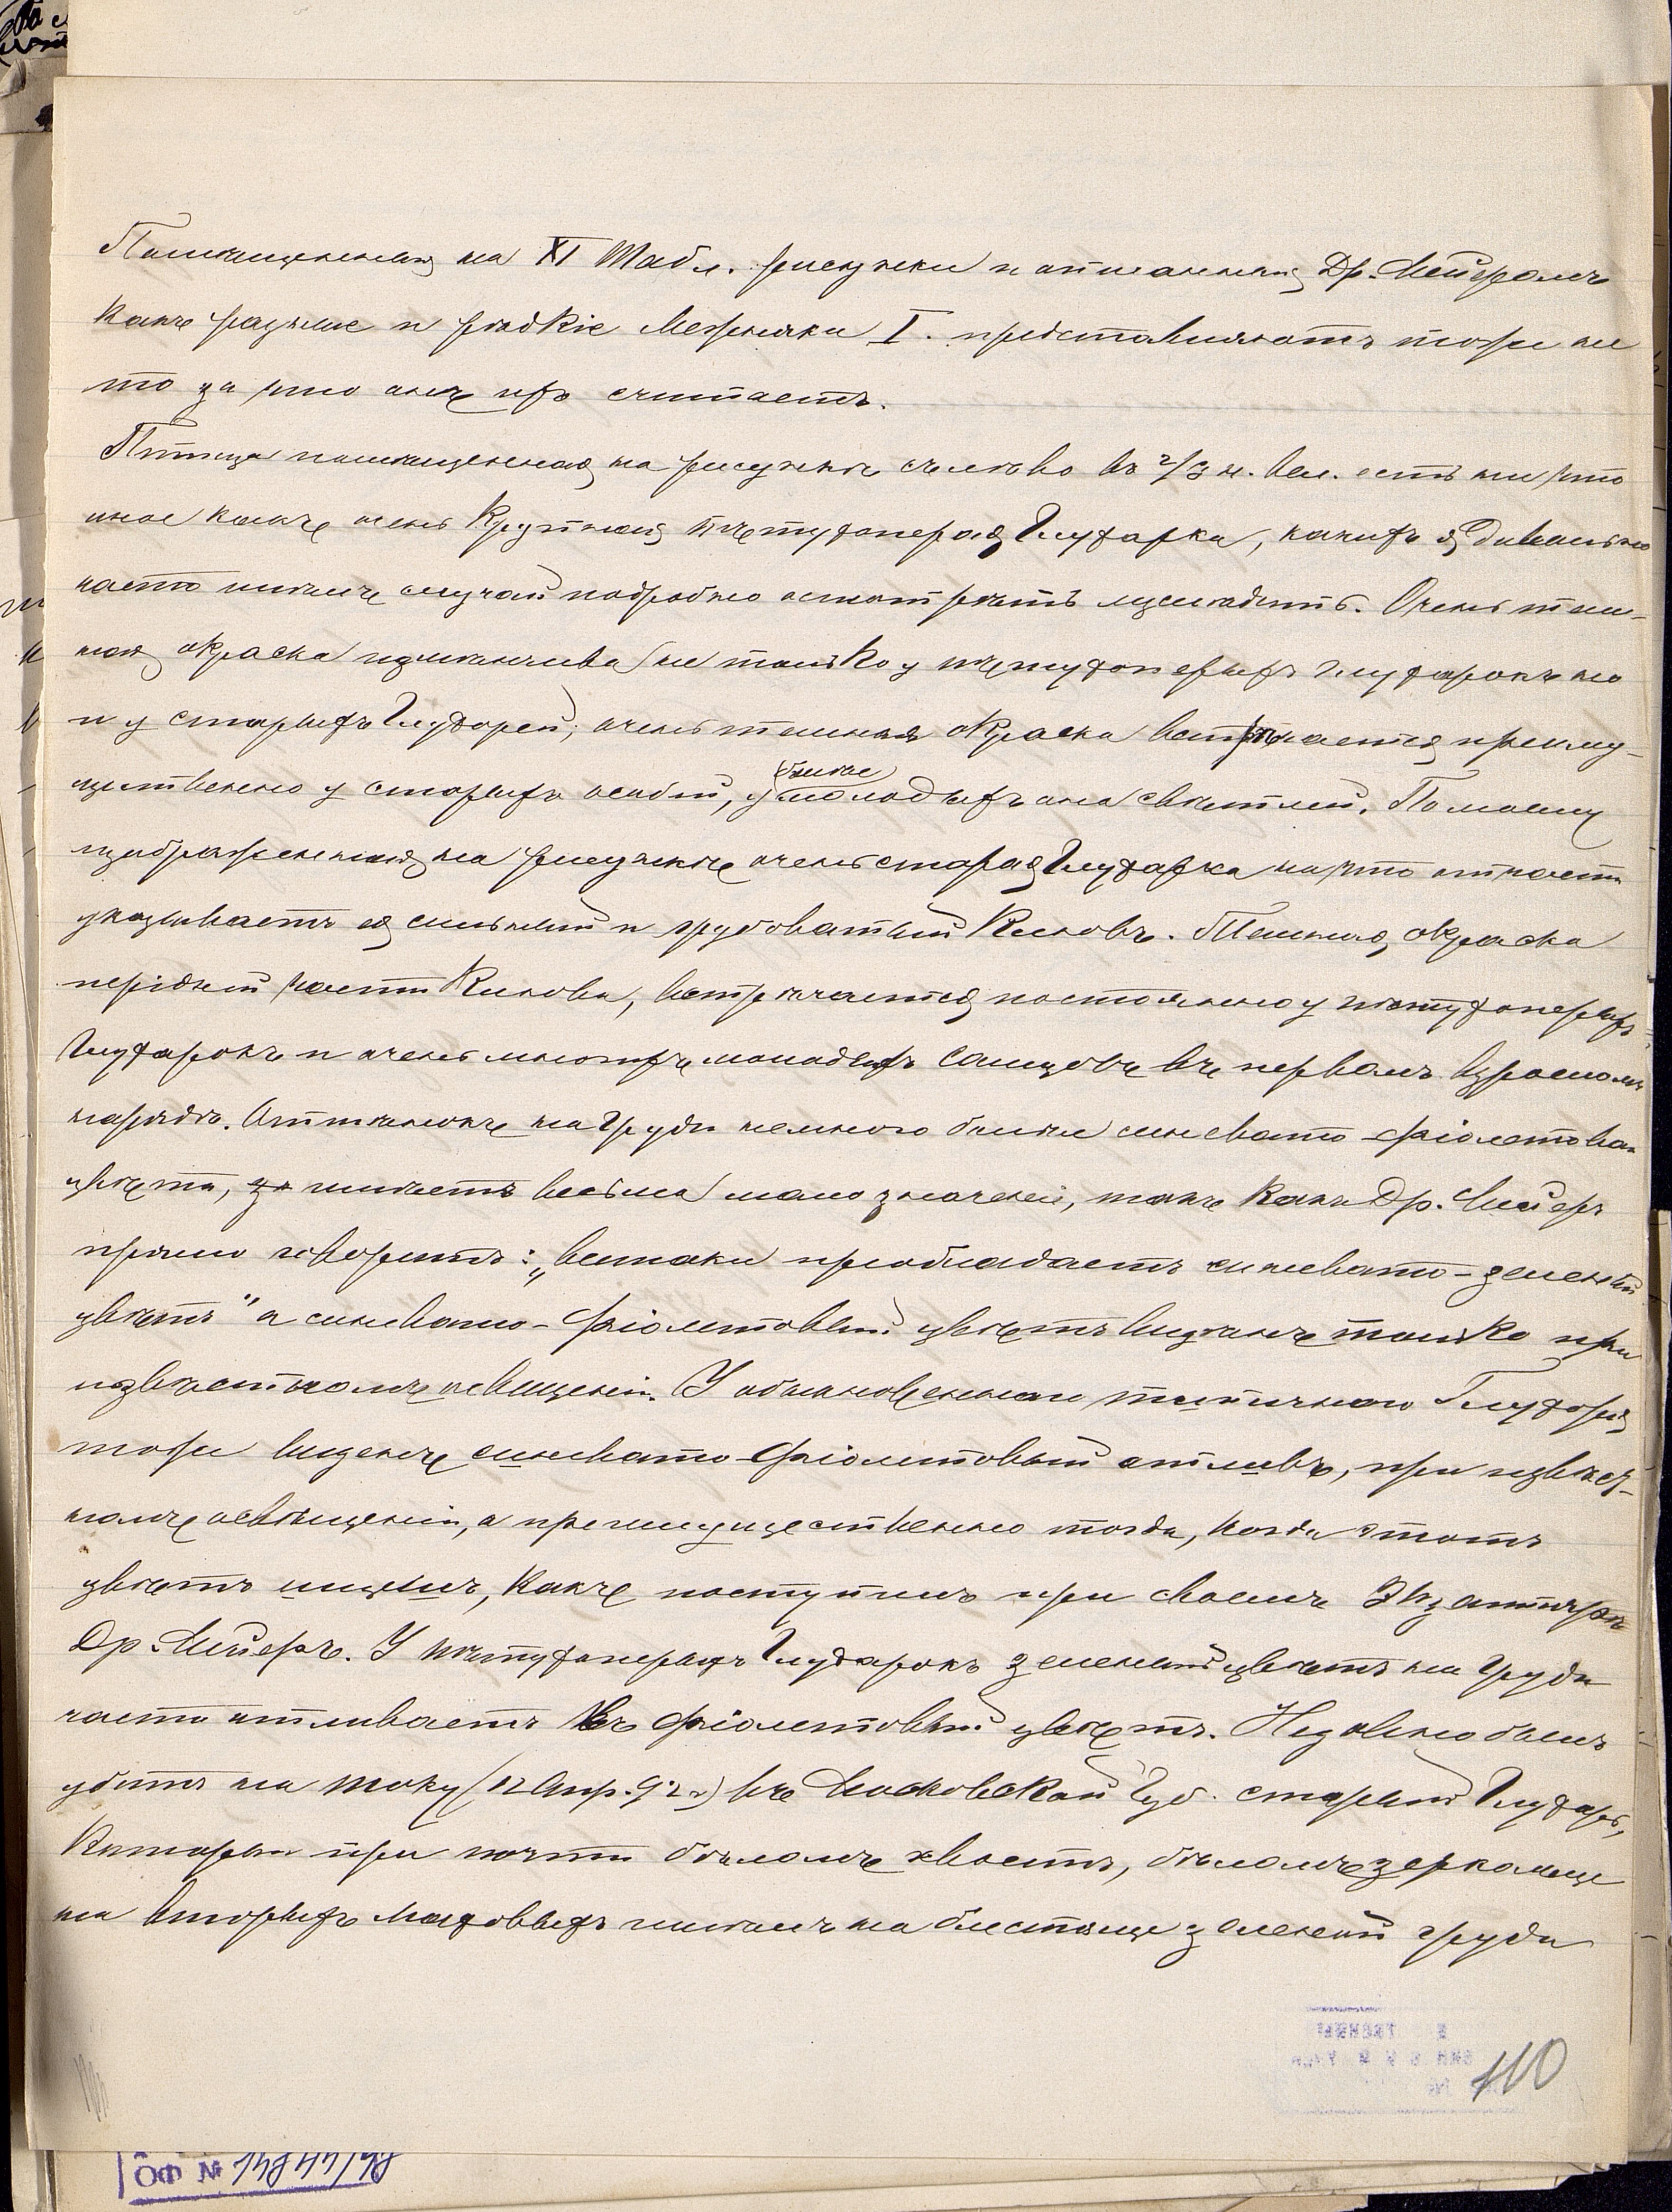 Помѣщенныя на XI Табл. рисунки и описанныя Др. Мейеромъ
какъ разные и рѣдкіе Межняки I. представляютъ тоже не
то за что онъ ихъ считаетъ.
Птица помѣщенная на рисункѣ слѣва въ 2/3 н. вел. есть ни что
иное какъ очень крупная пѣтухоперая Глухарка, какихъ я довольно
часто имѣлъ случай подробно осмотрѣть изслѣдить. Очень тем-
ная окраска измѣнчива не только у пѣтухоперыхъ глухарокъ но
и у старыхъ Глухарей; очень темная окраска встрѣчается преиму-
щественно у старыхъ особей, у
болѣе
молодыхъ она свѣтлей. По моему
изображенная на рисункѣ очень старая Глухарка на что отчасти
указываетъ ея сильный и грубоватый Клювъ. Темная окраска
передней части Клюва, встрѣчается постоянно у пѣтухоперыхъ
Глухарокъ и очень многихъ молодыхъ самцовъ въ первомъ взросломъ
нарядѣ. Оттѣнокъ на груди немного болѣе синевато-фіолетоваго
цвѣта, имѣетъ весьма мало значеній, такъ какъ Др. Мейеръ
прямо говоритъ: „всетаки преобладаетъ синевато-зеленый
цвѣтъ" а синевато-фіолетовый цвѣтъ видѣнъ только при
извѣстномъ освѣщеніи. У обыкновеннаго типичнаго Глухаря
тоже виденъ синевато-фіолетовый отливъ, при извѣст-
номъ освѣщеніи, а преимущественно тогда, когда этотъ
цвѣтъ ищешь, какъ поступилъ при своемъ Экземплярѣ
Др. Мейеръ. У пѣтухоперыхъ Глухарокъ зеленый цвѣтъ на груди
часто отливаетъ въ фіолетовый цвѣтъ. Недавно былъ
убитъ на току (12 Апр. 92 г.) въ Московской Губ. старый Глухарь,
который при почти бѣломъ хвостѣ, бѣломъ зеркальце
на вторыхъ маховыхъ имѣлъ на блестяще зеленой груди
110
ОФ № 14844/48